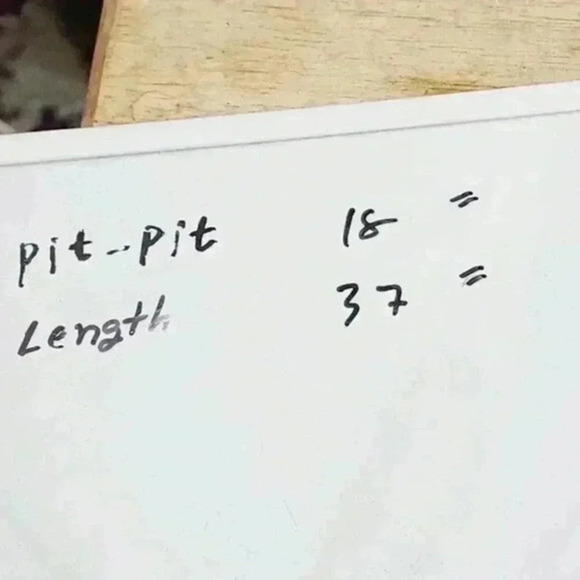 Pit-Pit 18 "
Length 37 "